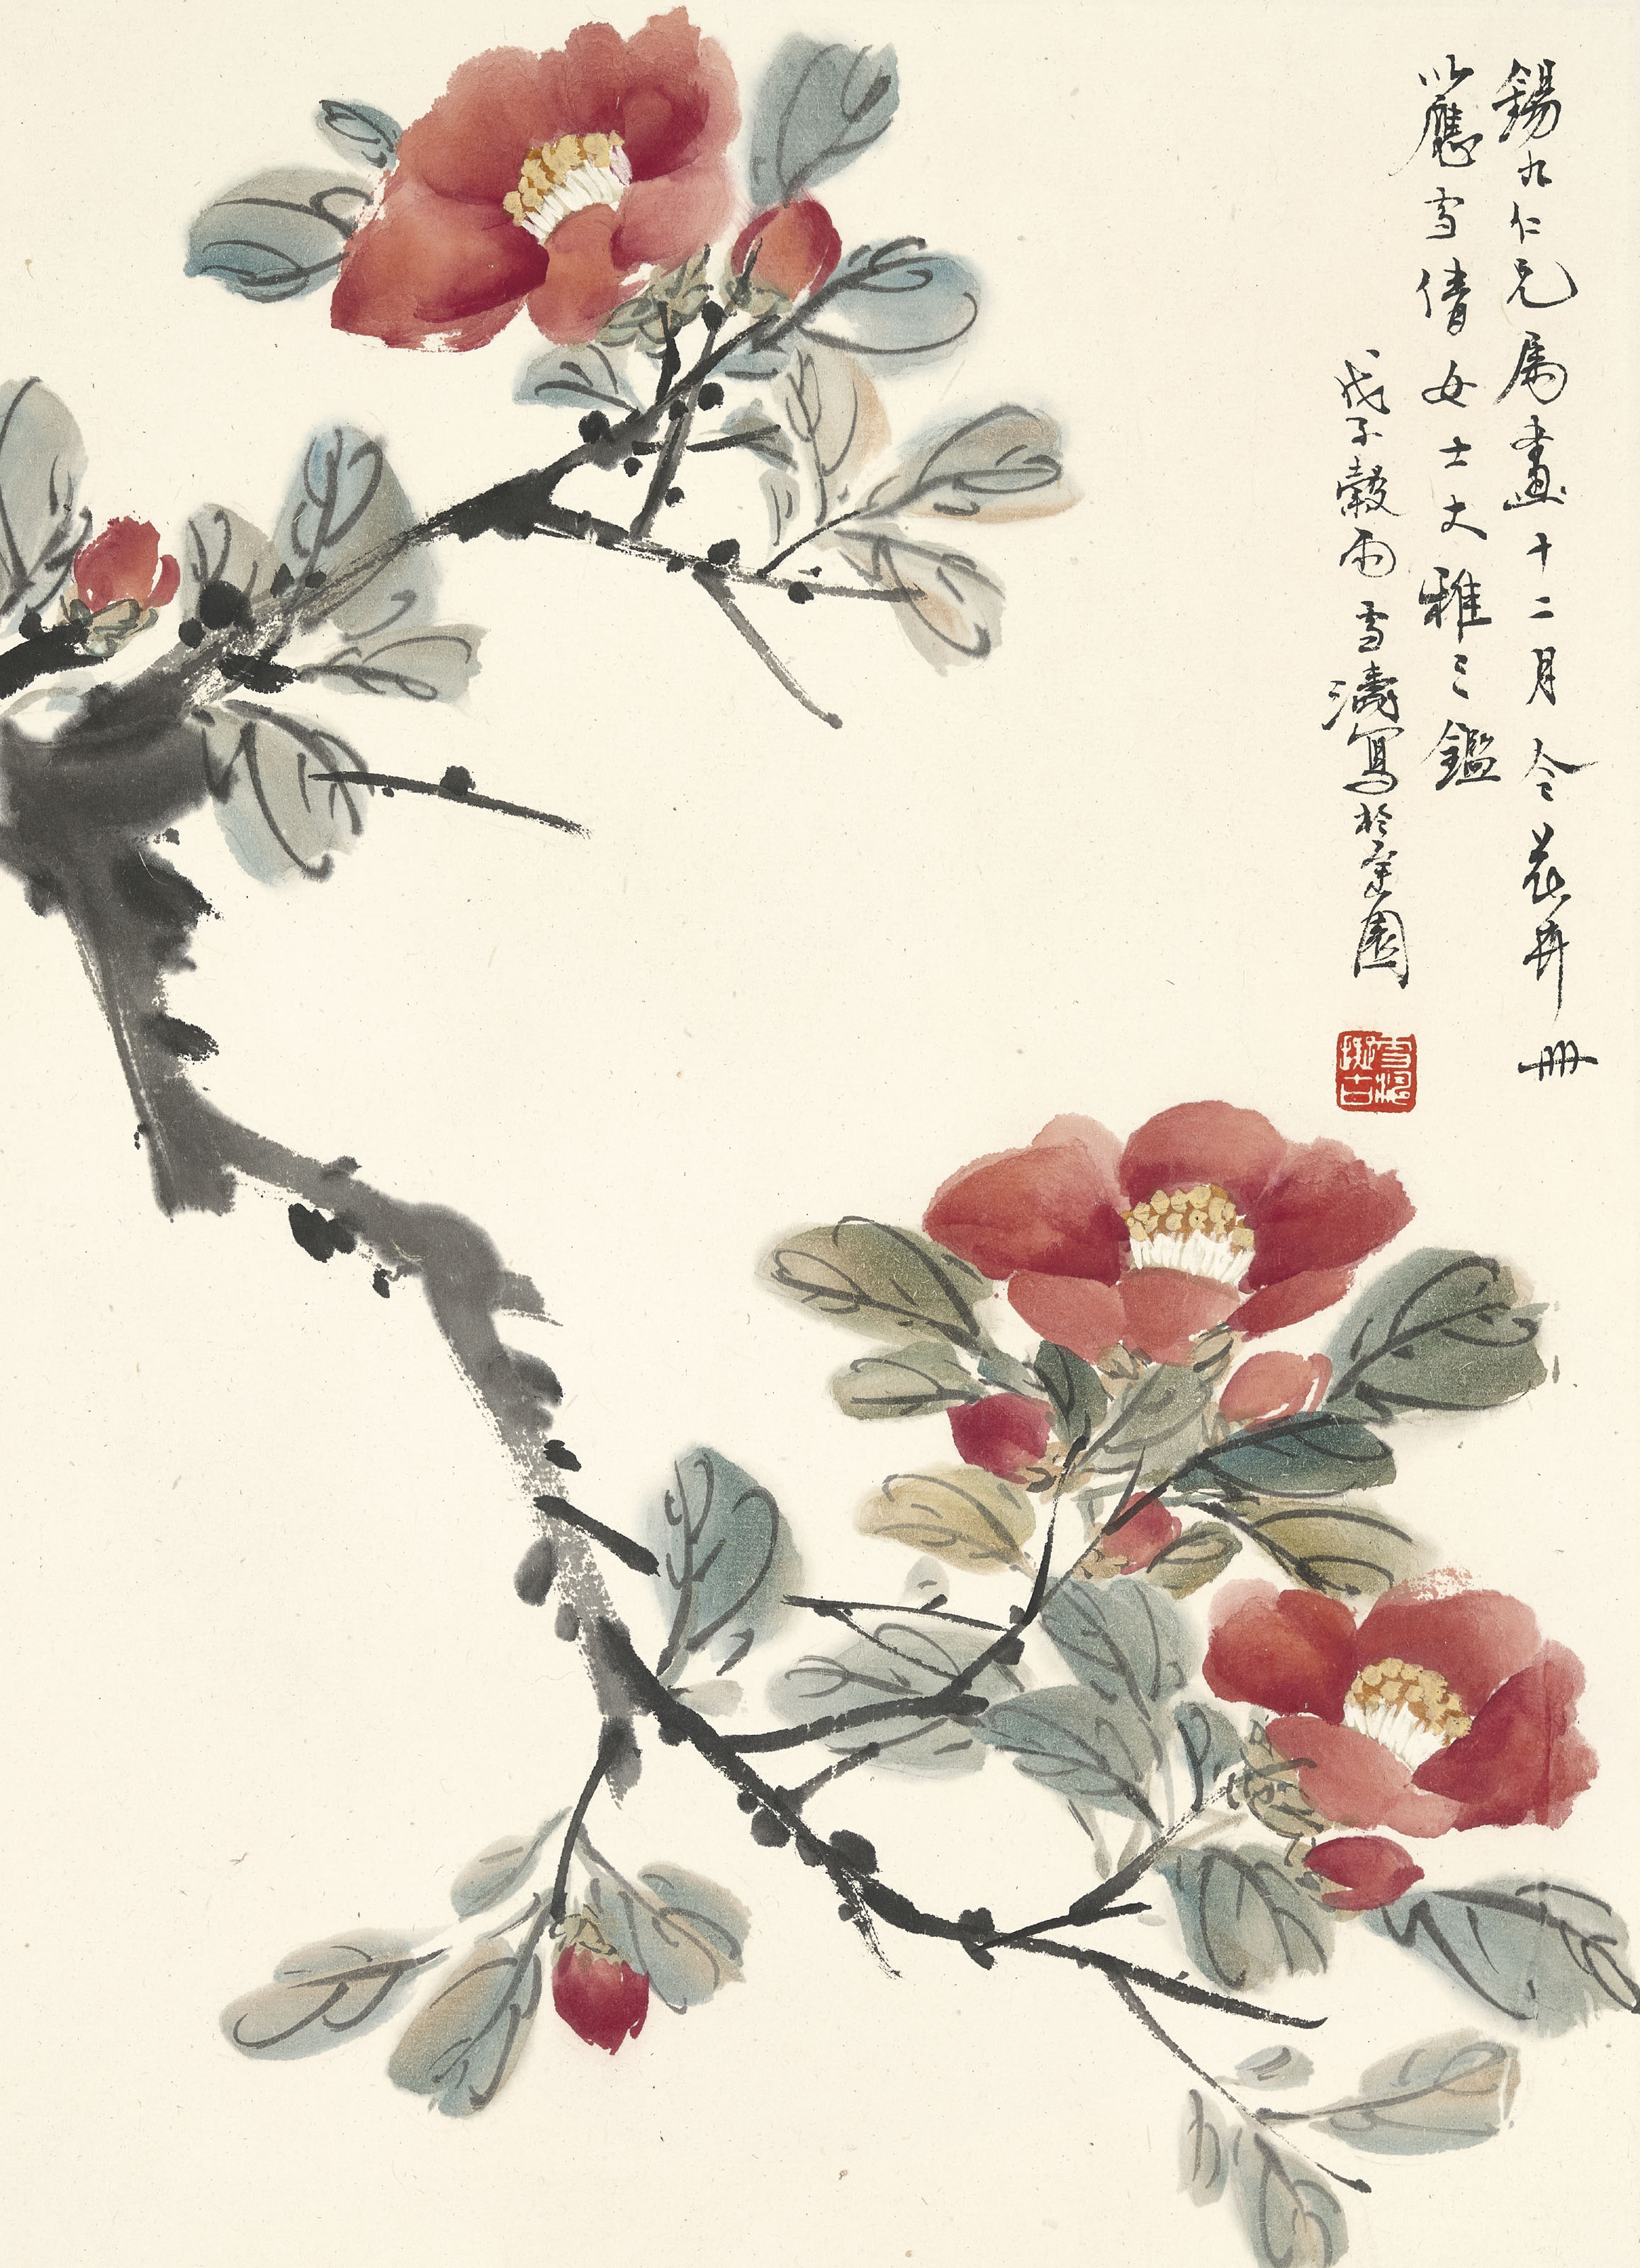 錫九仁兄属畫十二月令花卉冊
以應雪倩女士大雅之鑑
戊子穀雨雪濤寫於京園
雪濤
擬古